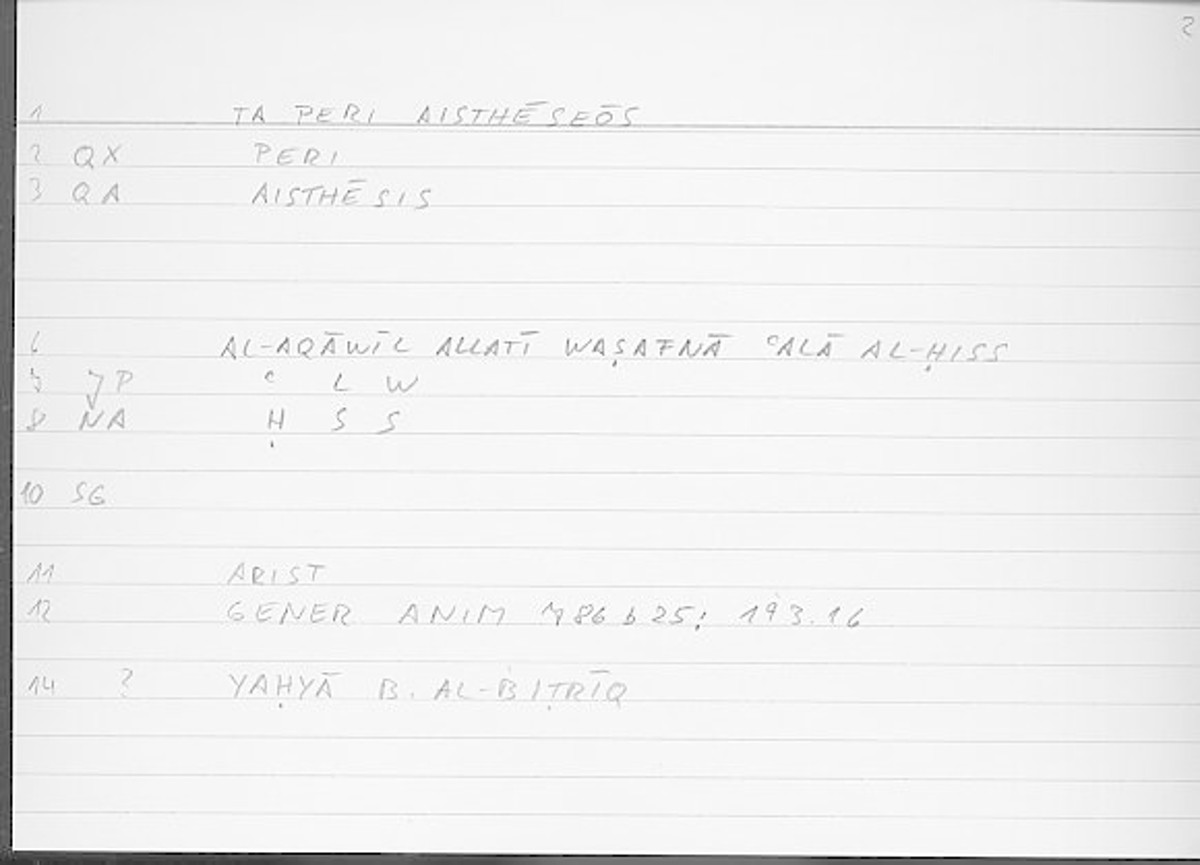 2
1 TA PERI AISTHĒSEŌS
2 QX PERI
3 QA AISTHĒSIS
6 AL-AQĀWĪL ALLATĪ WAṢAFNĀ ʿALĀ AL-ḤISS
7 JP ʿ L W
8 NA Ḥ S S
10 SG
11 ARIST
12 GENER ANIM 786 b 25; 193.16
14 ? YAḤYĀ B. AL-BIṬRĪQ